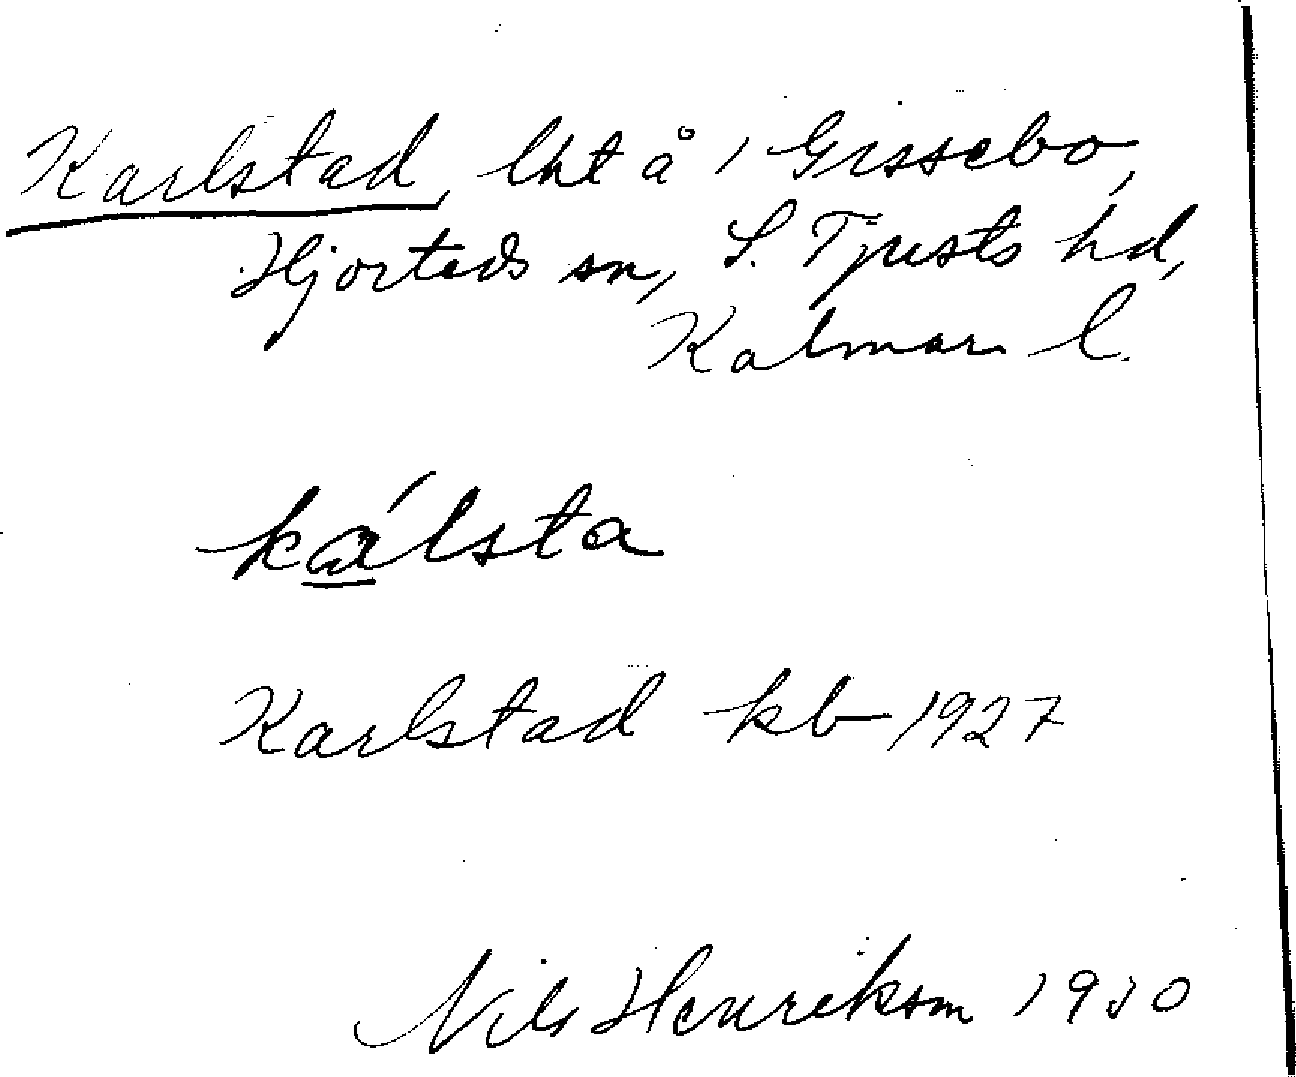 Karlstad, lht å 1 Gissebo,
Hjorteds sn, S. Tjusts hd,
Kalmar l.
kálsta
Karlstad kb 1927
Nils Henriksson 1930